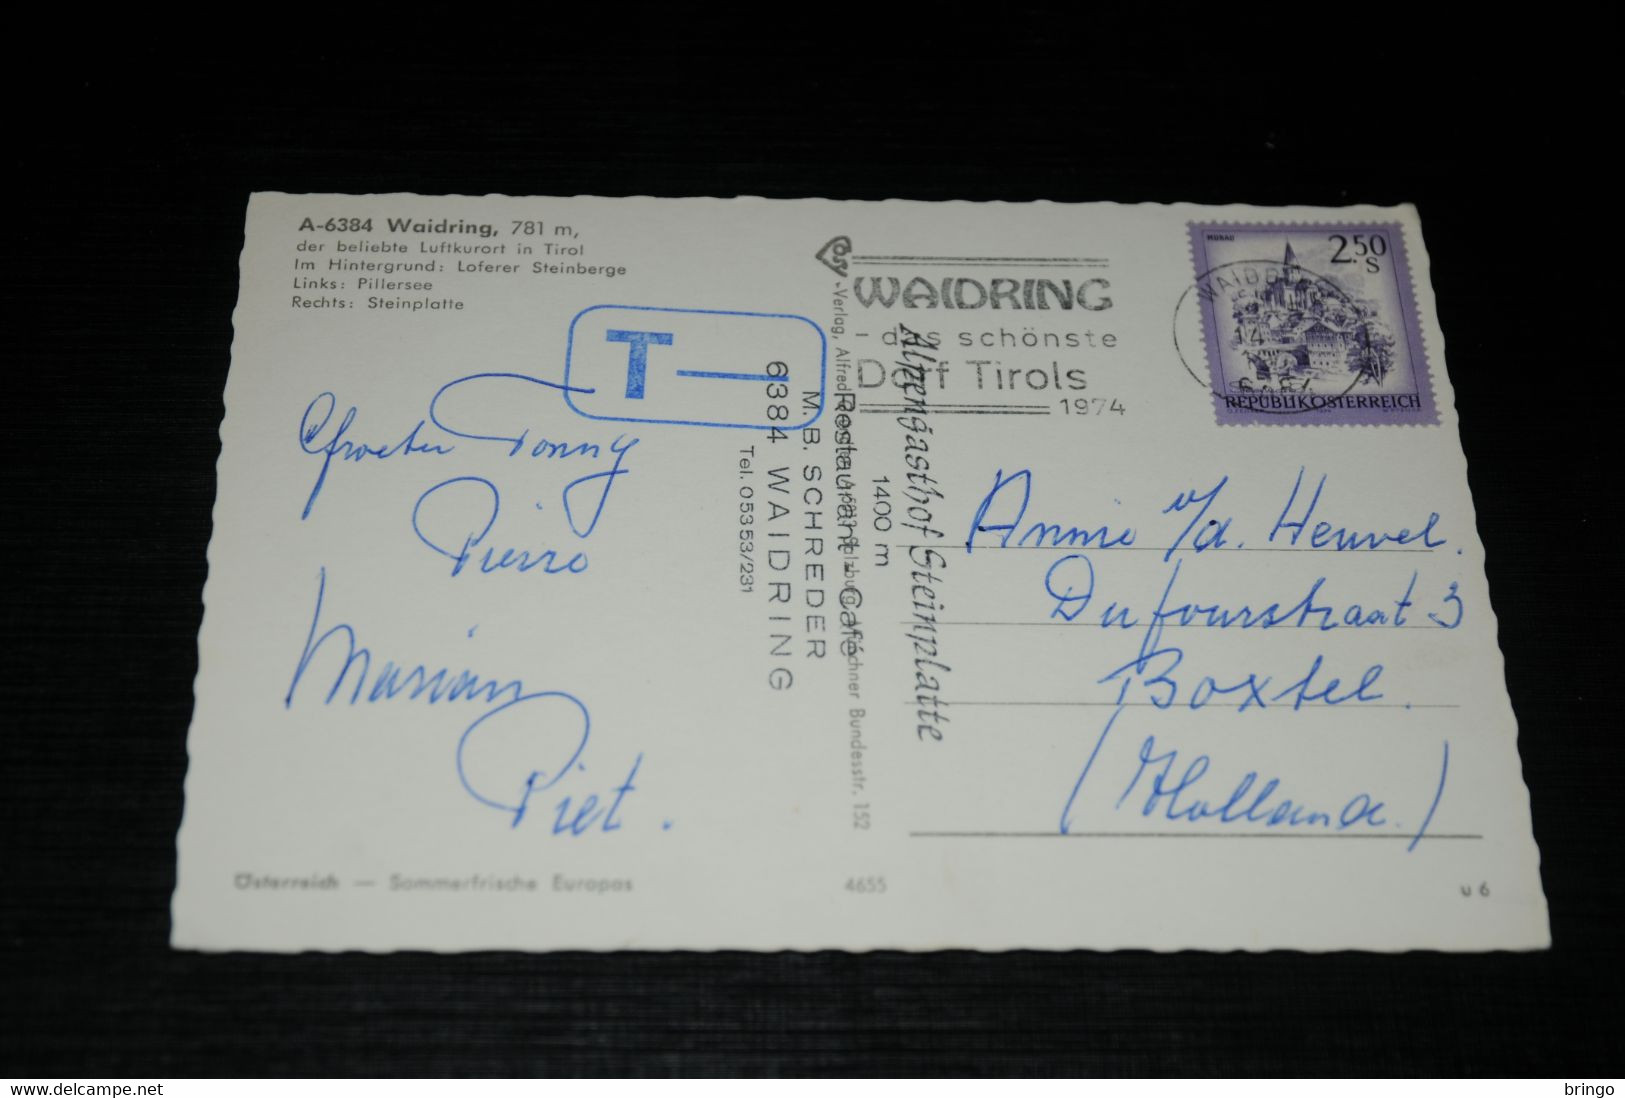 A-6384 Waidring, 781 m,
der beliebte Luftkurort in Tirol
Im Hintergrund: Loferer Steinberge
Links: Pillersee
Rechts: Steinplatte
T
Groeten Tonny
Pierre
Marian
Piet.
Österreich — Sommerfrische Europas
4655
u 6
Cosy-Verlag, Alfred Salzburg, Bundesstr. 152
Alpengasthof Steinplatte
1400 m
Restaurant - Café
M. B. SCHREDER
6384 WAIDRING
Tel. 05353/231
WAIDRING
das schönste
Dorf Tirols
1974
MURAU
2.50
S
REPUBLIK ÖSTERREICH
WAIDRING
14
6384
Annie v/d. Heuvel.
Dufourstraat 3
Boxtel.
(Holland.)
bringo
© www.delcampe.net